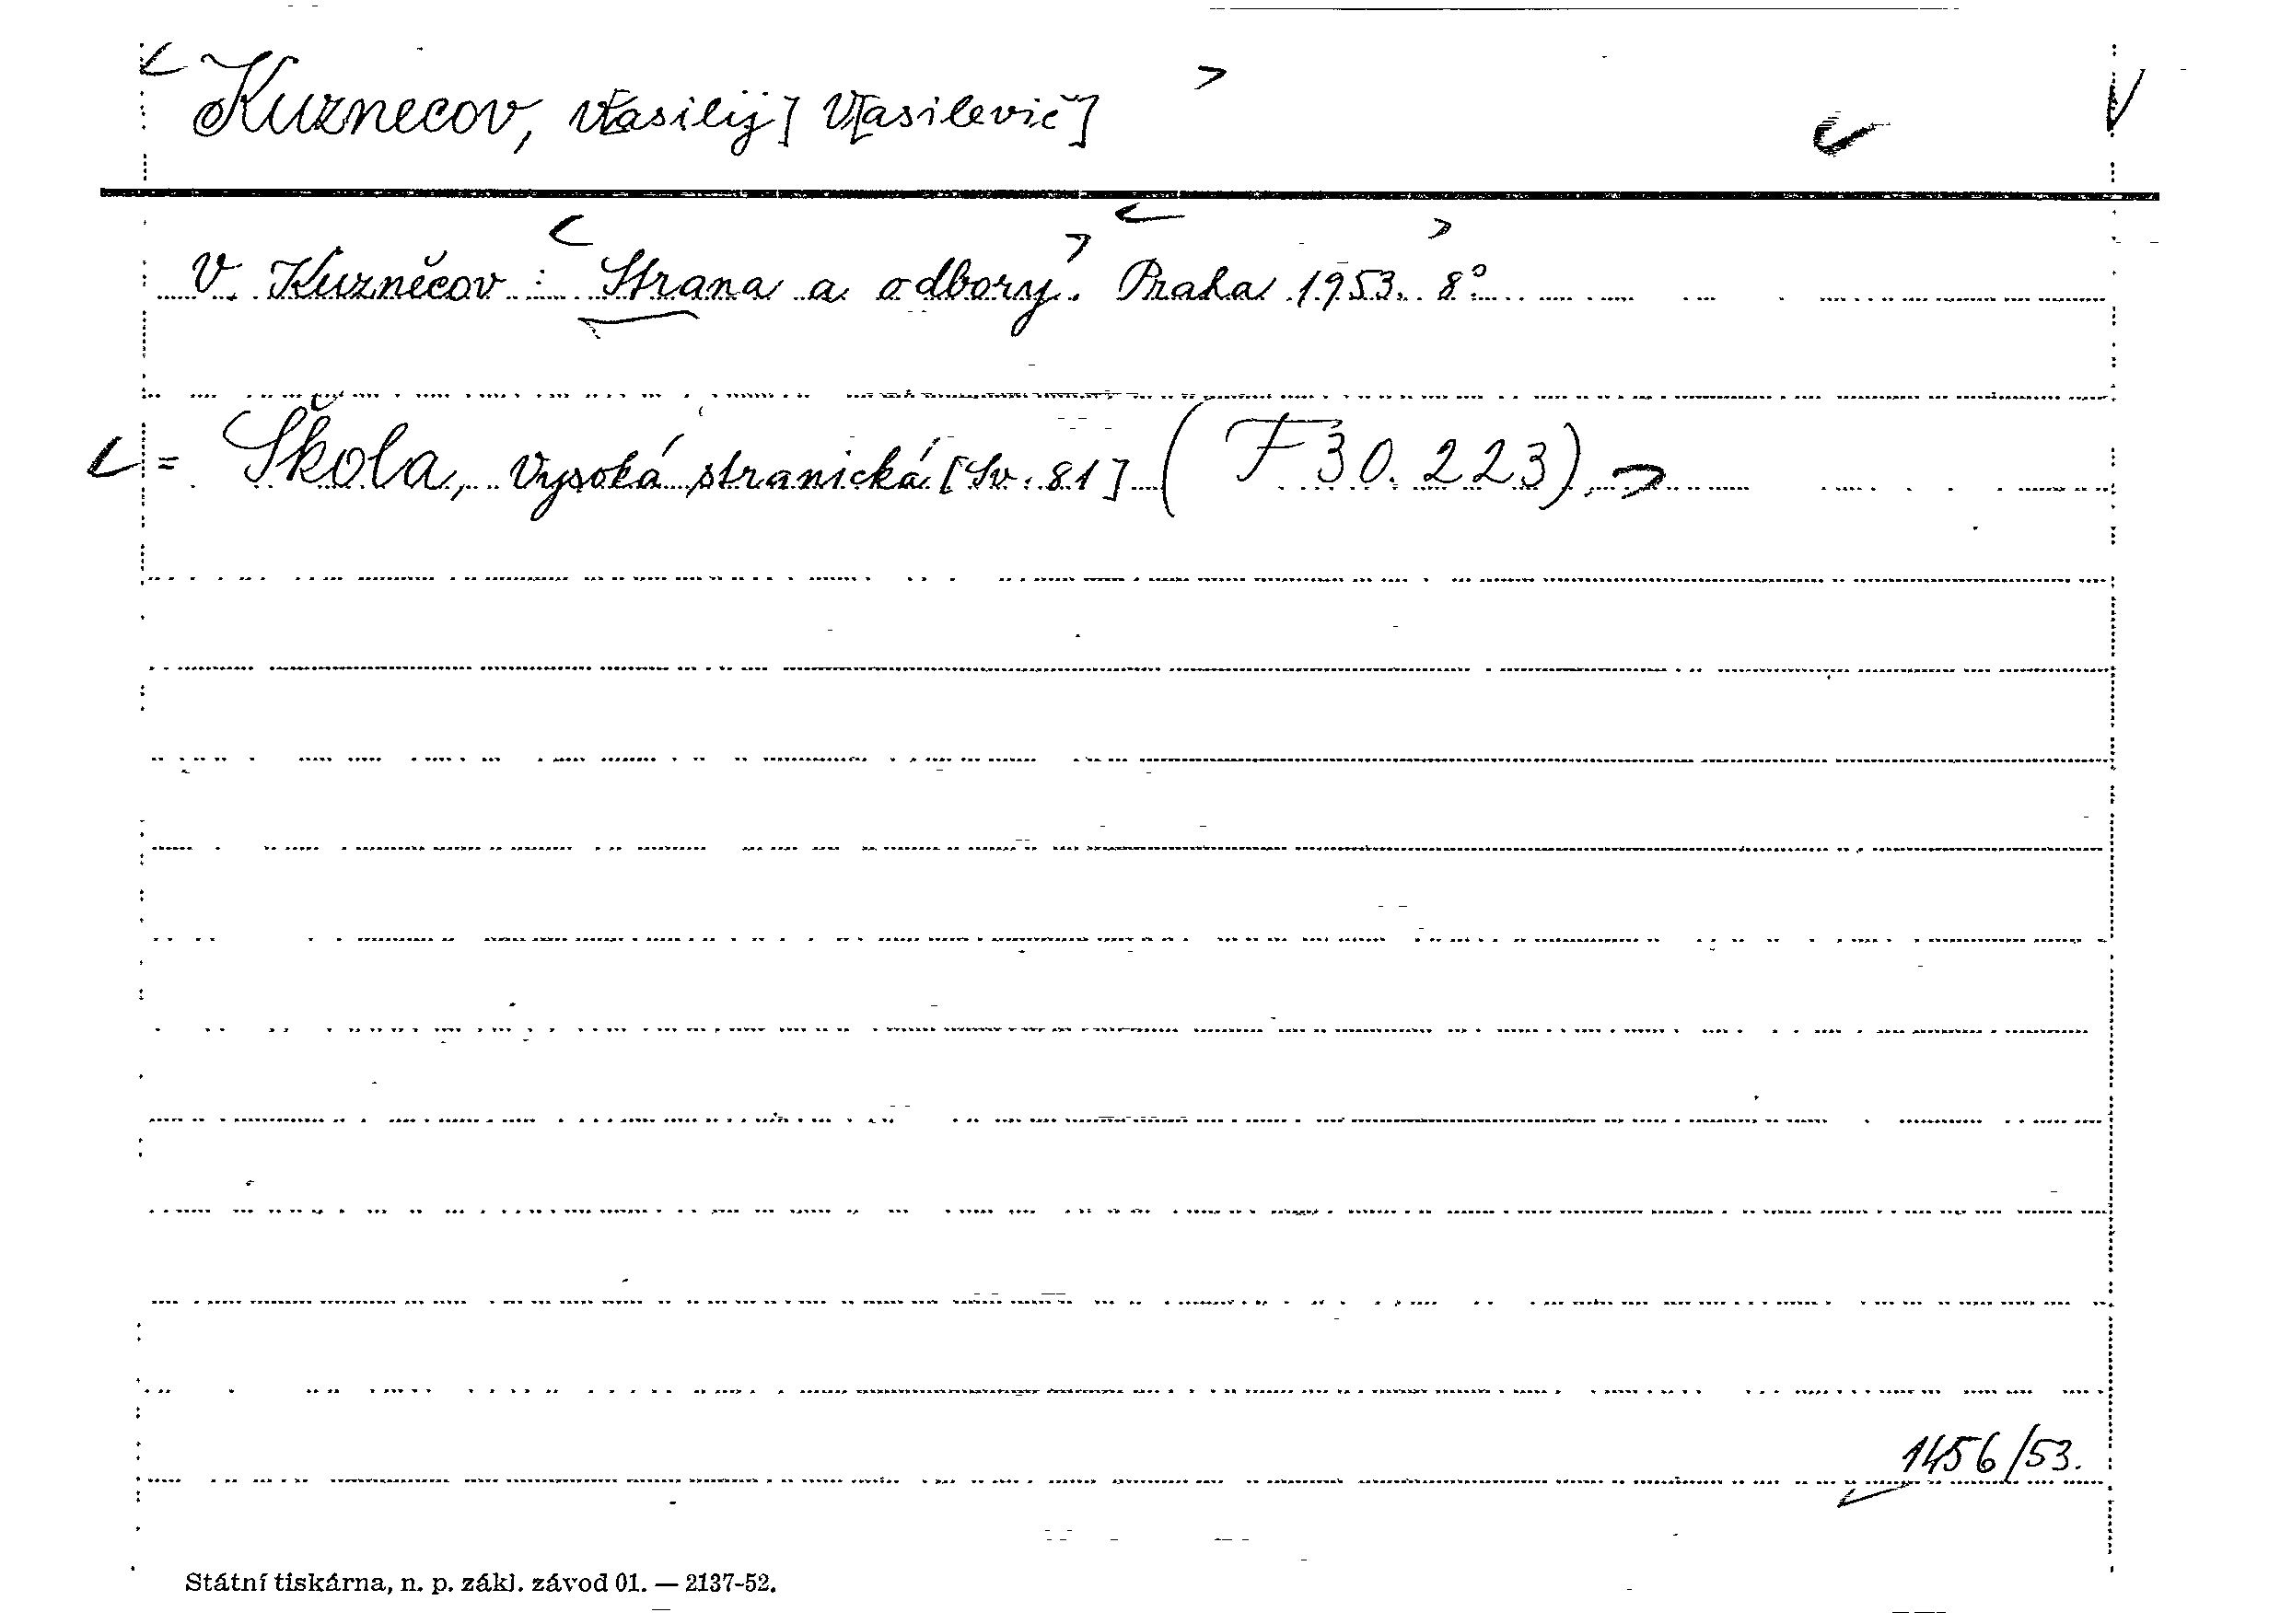 Kuznecov, V[asilij] V[asilevič]
V. Kuzněcov: Strana a odbory. Praha 1953. 8°
= Škola, Vysoká stranická [Sv. 81] (F 30.223)
1456/53.
Státní tiskárna, n. p. zákl. závod 01. — 2137-52.